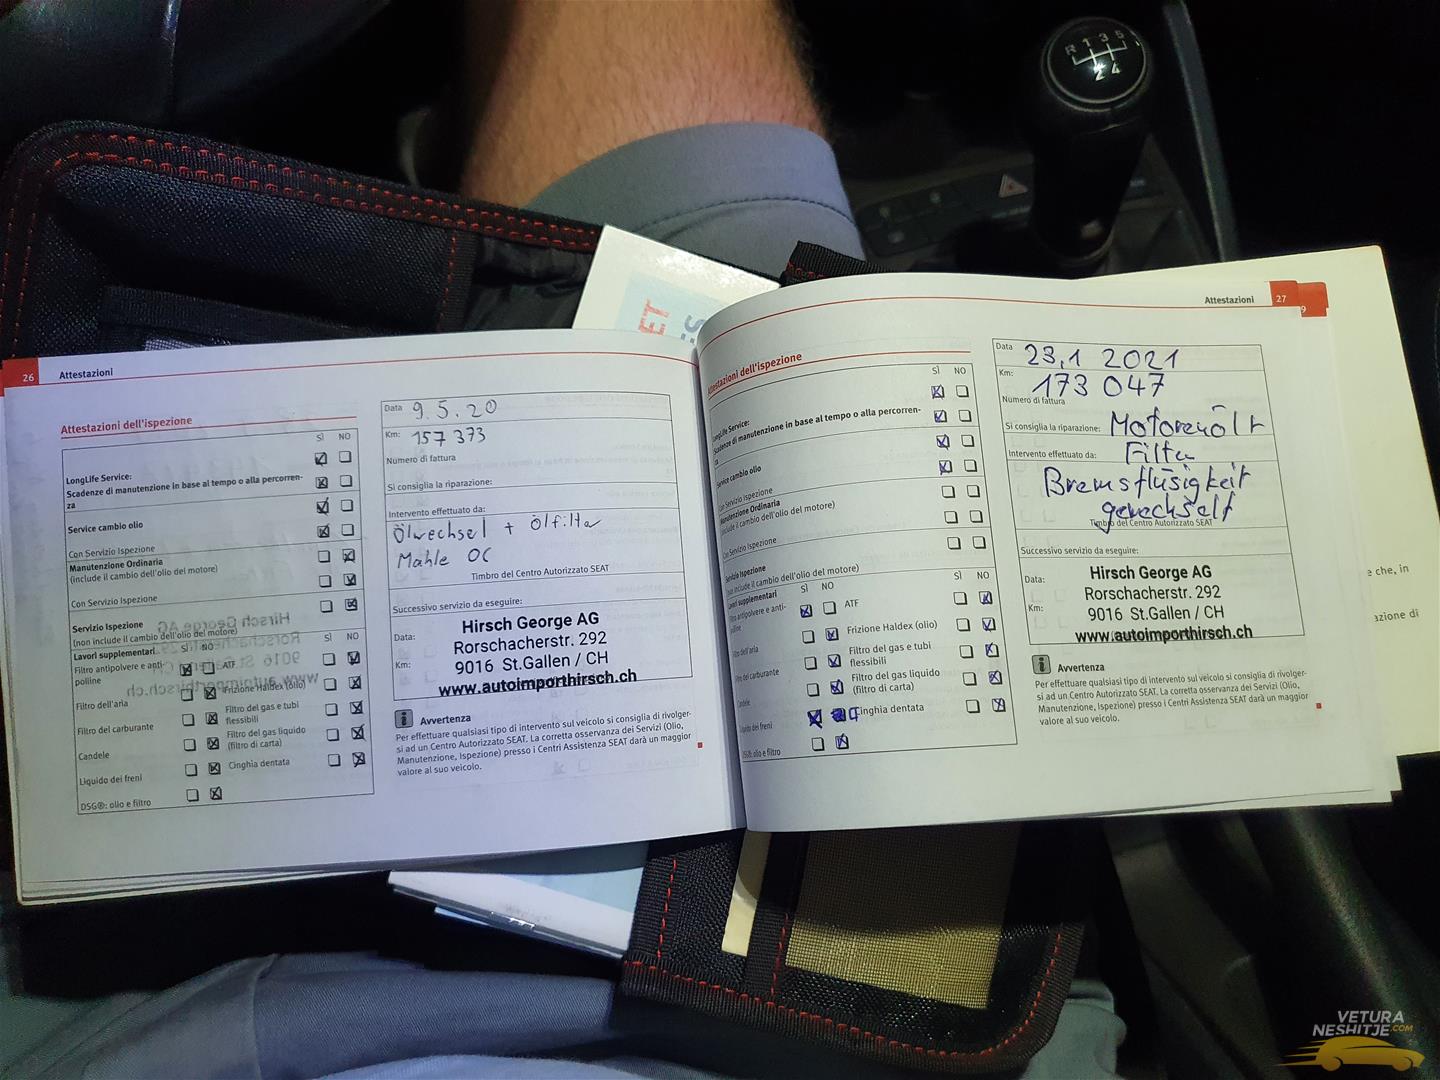 R 1 3 5
2 4
26 Attestazioni
Attestazioni dell'ispezione
SÌ NO
LongLife Service:
Scadenze di manutenzione in base al tempo o alla percorren-
za
Service cambio olio
Con Servizio Ispezione
Manutenzione Ordinaria
(include il cambio dell'olio del motore)
Con Servizio Ispezione
Servizio Ispezione
(non include il cambio dell'olio del motore)
Lavori supplementari SÌ NO SÌ NO
Filtro antipolvere e anti-
polline
ATF
Filtro dell'aria
Frizione Haldex (olio)
Filtro del carburante
Filtro del gas e tubi
flessibili
Candele
Filtro del gas liquido
(filtro di carta)
Liquido dei freni
Cinghia dentata
DSG®: olio e filtro
Data 9.5.20
Km: 157 373
Numero di fattura
Si consiglia la riparazione:
Intervento effettuato da:
Ölwechsel + Ölfilter
Mahle OC
Timbro del Centro Autorizzato SEAT
Successivo servizio da eseguire:
Data:
Km:
Hirsch George AG
Rorschacherstr. 292
9016 St.Gallen / CH
www.autoimporthirsch.ch
Avvertenza
Per effettuare qualsiasi tipo di intervento sul veicolo si consiglia di rivolger-
si ad un Centro Autorizzato SEAT. La corretta osservanza dei Servizi (Olio,
Manutenzione, Ispezione) presso i Centri Assistenza SEAT darà un maggior
valore al suo veicolo.
Attestazioni 27
9
Attestazioni dell'ispezione
SÌ NO
LongLife Service:
Scadenze di manutenzione in base al tempo o alla percorren-
za
Service cambio olio
Con Servizio Ispezione
Manutenzione Ordinaria
(include il cambio dell'olio del motore)
Con Servizio Ispezione
Servizio Ispezione
(non include il cambio dell'olio del motore)
Lavori supplementari SÌ NO SÌ NO
Filtro antipolvere e anti-
polline
ATF
Filtro dell'aria
Frizione Haldex (olio)
Filtro del carburante
Filtro del gas e tubi
flessibili
Candele
Filtro del gas liquido
(filtro di carta)
Liquido dei freni
Cinghia dentata
DSG®: olio e filtro
Data 23,1 2021
Km: 173 047
Numero di fattura
Si consiglia la riparazione: Motorenöl +
Intervento effettuato da: Filter
Bremsflüsigkeit
gewechselt
Timbro del Centro Autorizzato SEAT
Successivo servizio da eseguire:
Data:
Km:
Hirsch George AG
Rorschacherstr. 292
9016 St.Gallen / CH
www.autoimporthirsch.ch
Avvertenza
Per effettuare qualsiasi tipo di intervento sul veicolo si consiglia di rivolger-
si ad un Centro Autorizzato SEAT. La corretta osservanza dei Servizi (Olio,
Manutenzione, Ispezione) presso i Centri Assistenza SEAT darà un maggior
valore al suo veicolo.
e che, in
azione di
VETURA
NESHITJE.COM